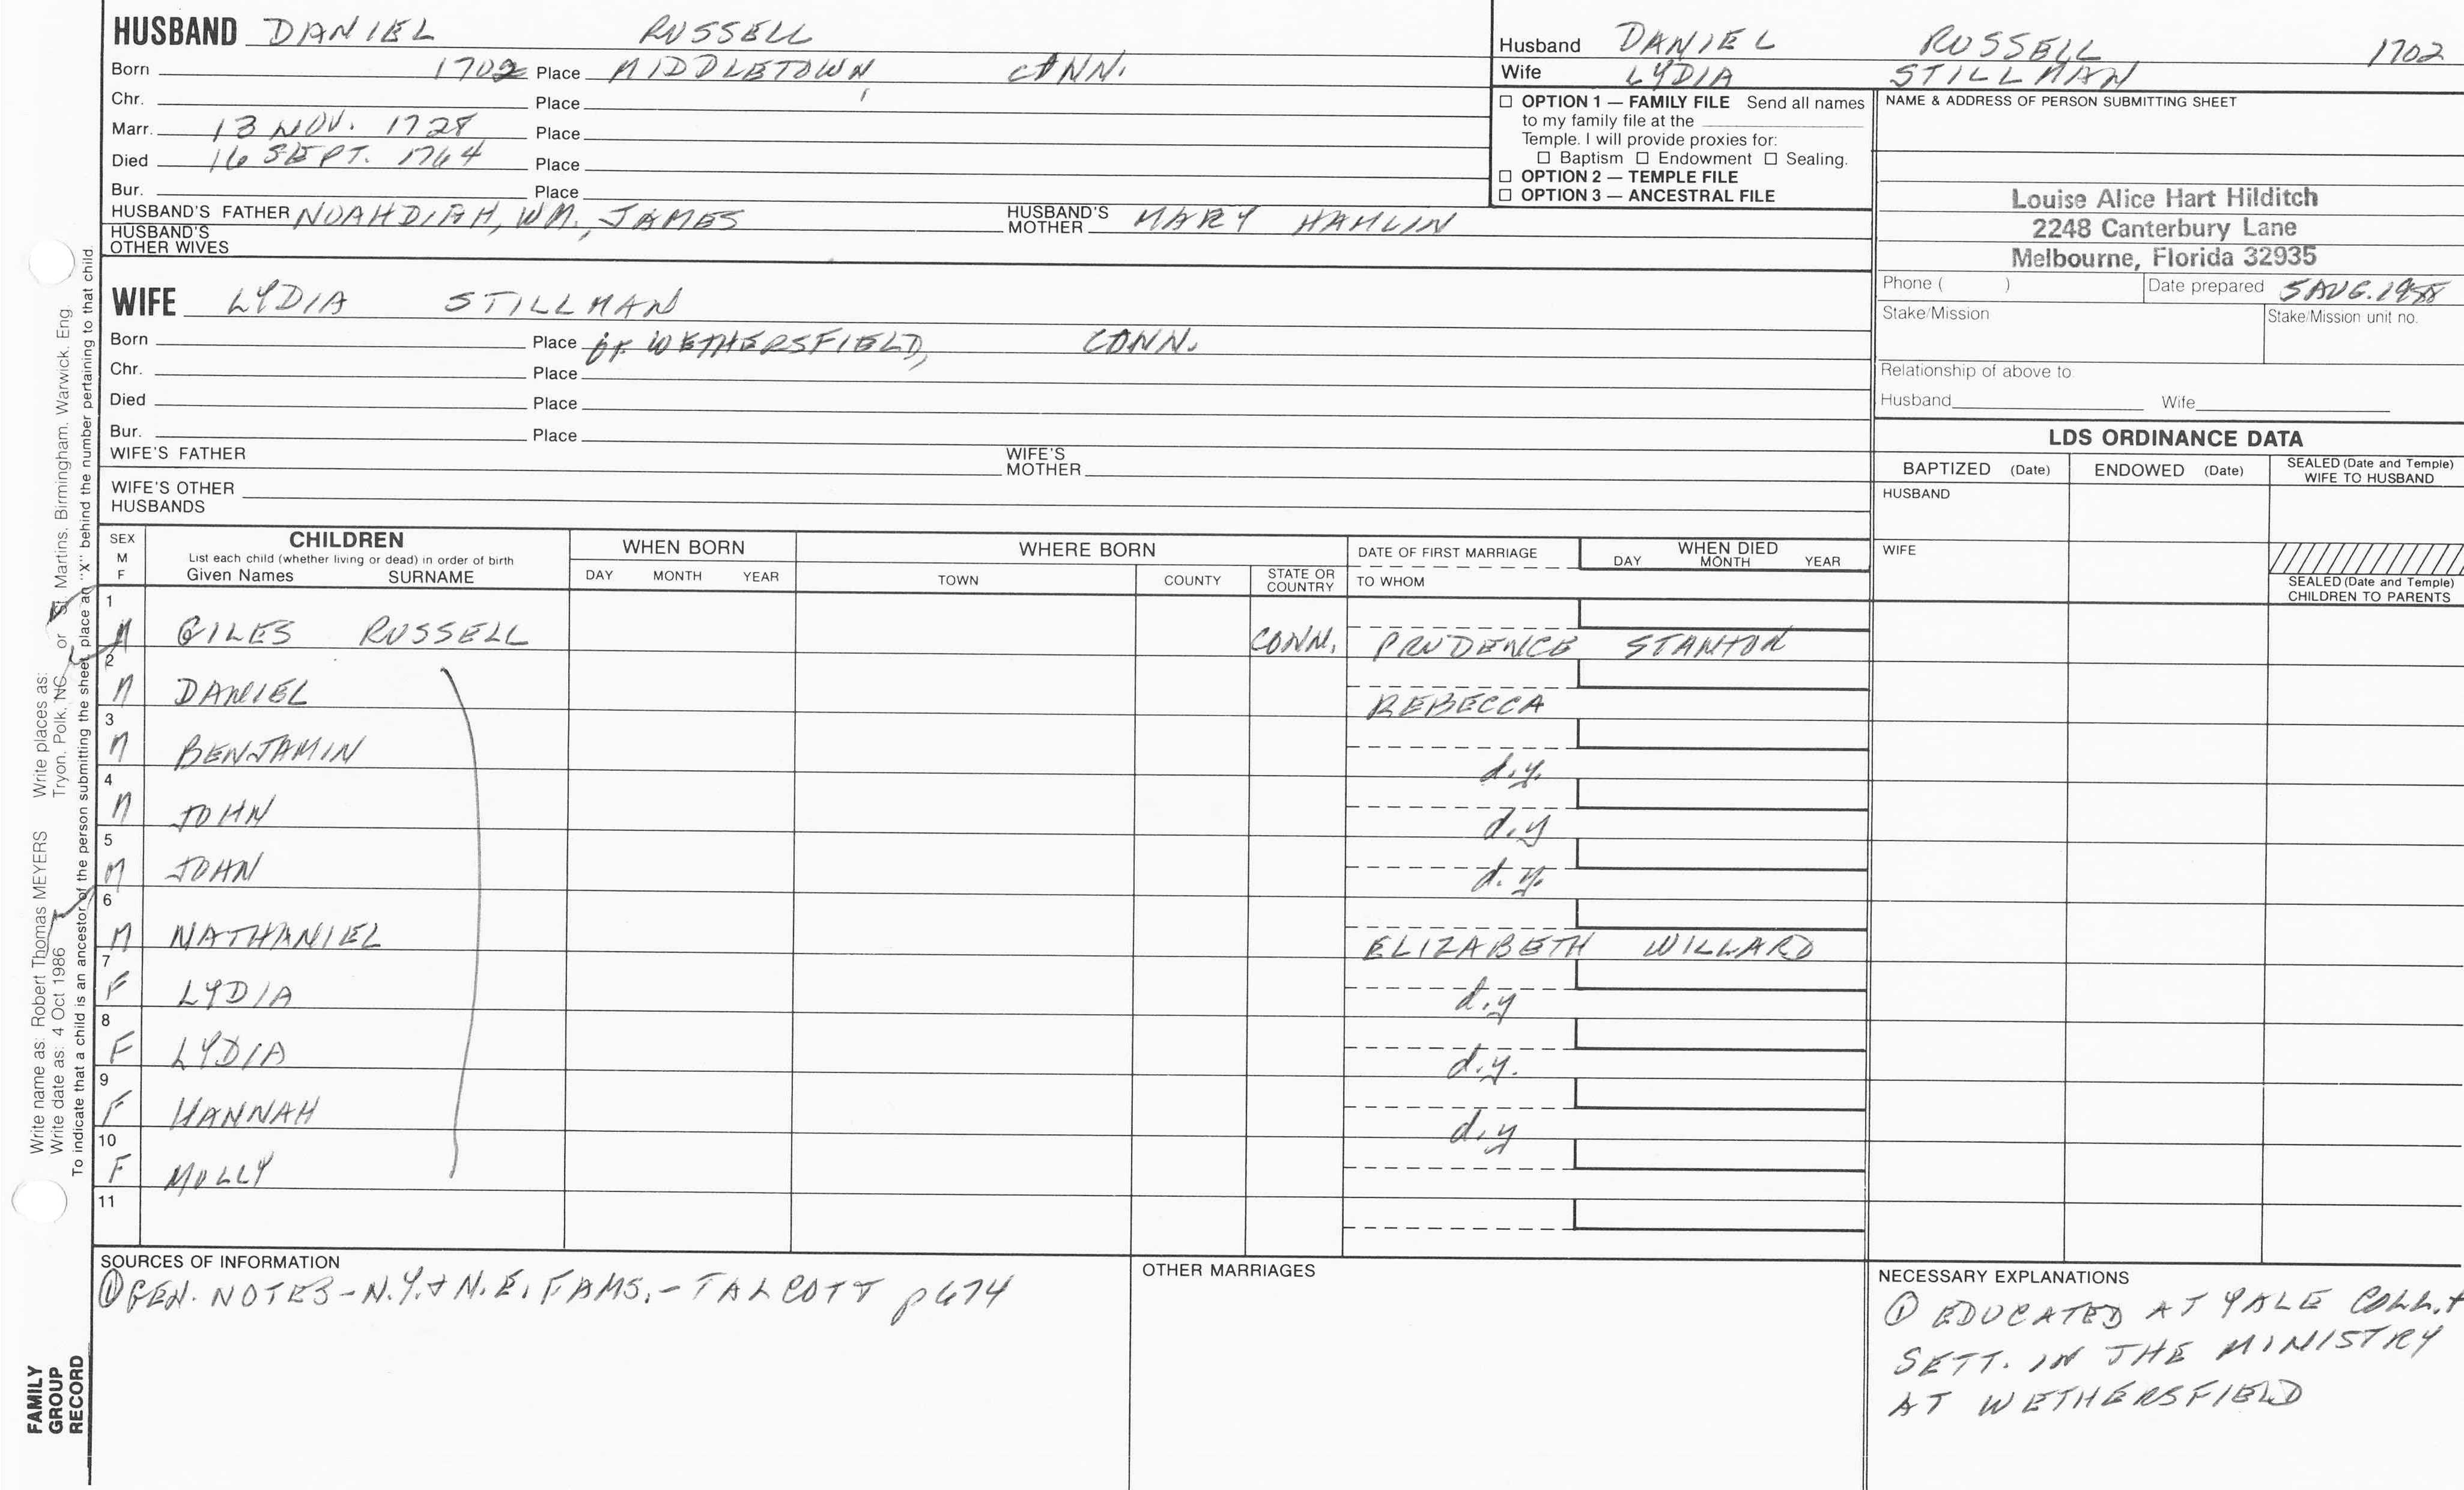 HUSBAND DANIEL RUSSELL
Born 1702 Place MIDDLETOWN, CONN.
Chr. Place
Marr. 13 NOV. 1728 Place
Died 16 SEPT. 1764 Place
Bur. Place
HUSBAND'S FATHER NOAHDIAH, WM., JAMES HUSBAND'S MOTHER MARY HAMLIN
HUSBAND'S OTHER WIVES
WIFE LYDIA STILLMAN
Born Place of WETHERSFIELD, CONN.
Chr. Place
Died Place
Bur. Place
WIFE'S FATHER WIFE'S MOTHER
WIFE'S OTHER HUSBANDS
Husband DANIEL RUSSELL 1702
Wife LYDIA STILLMAN
☐ OPTION 1 — FAMILY FILE Send all names
to my family file at the
Temple. I will provide proxies for:
☐ Baptism ☐ Endowment ☐ Sealing.
☐ OPTION 2 — TEMPLE FILE
☐ OPTION 3 — ANCESTRAL FILE
NAME & ADDRESS OF PERSON SUBMITTING SHEET
Louise Alice Hart Hilditch
2248 Canterbury Lane
Melbourne, Florida 32935
Phone ( ) Date prepared 5 AUG. 1988
Stake/Mission Stake/Mission unit no.
Relationship of above to
Husband Wife
LDS ORDINANCE DATA
BAPTIZED (Date) ENDOWED (Date) SEALED (Date and Temple) WIFE TO HUSBAND
HUSBAND
WIFE
SEALED (Date and Temple)
CHILDREN TO PARENTS
SEX M F CHILDREN WHEN BORN WHERE BORN DATE OF FIRST MARRIAGE WHEN DIED
List each child (whether living or dead) in order of birth
Given Names SURNAME DAY MONTH YEAR TOWN COUNTY STATE OR COUNTRY TO WHOM DAY MONTH YEAR
1 M GILES RUSSELL CONN. PRUDENCE STANTON
2 M DANIEL REBECCA
3 M BENJAMIN d.y.
4 M JOHN d.y
5 M JOHN d.y.
6 M NATHANIEL ELIZABETH WILLARD
7 F LYDIA d.y
8 F LYDIA d.y.
9 F HANNAH d.y
10 F MOLLY
11
SOURCES OF INFORMATION
① GEN. NOTES - N.Y. + N.E. FAMS. - TALCOTT p 674
OTHER MARRIAGES
NECESSARY EXPLANATIONS
① EDUCATED AT YALE COLL. +
SETT. IN THE MINISTRY
AT WETHERSFIELD
Write name as: Robert Thomas MEYERS Write places as:
Write date as: 4 Oct 1986 Tryon. Polk. NC or St. Martins. Birmingham. Warwick. Eng.
To indicate that a child is an ancestor of the person submitting the sheet, place an "X" behind the number pertaining to that child.
FAMILY
GROUP
RECORD